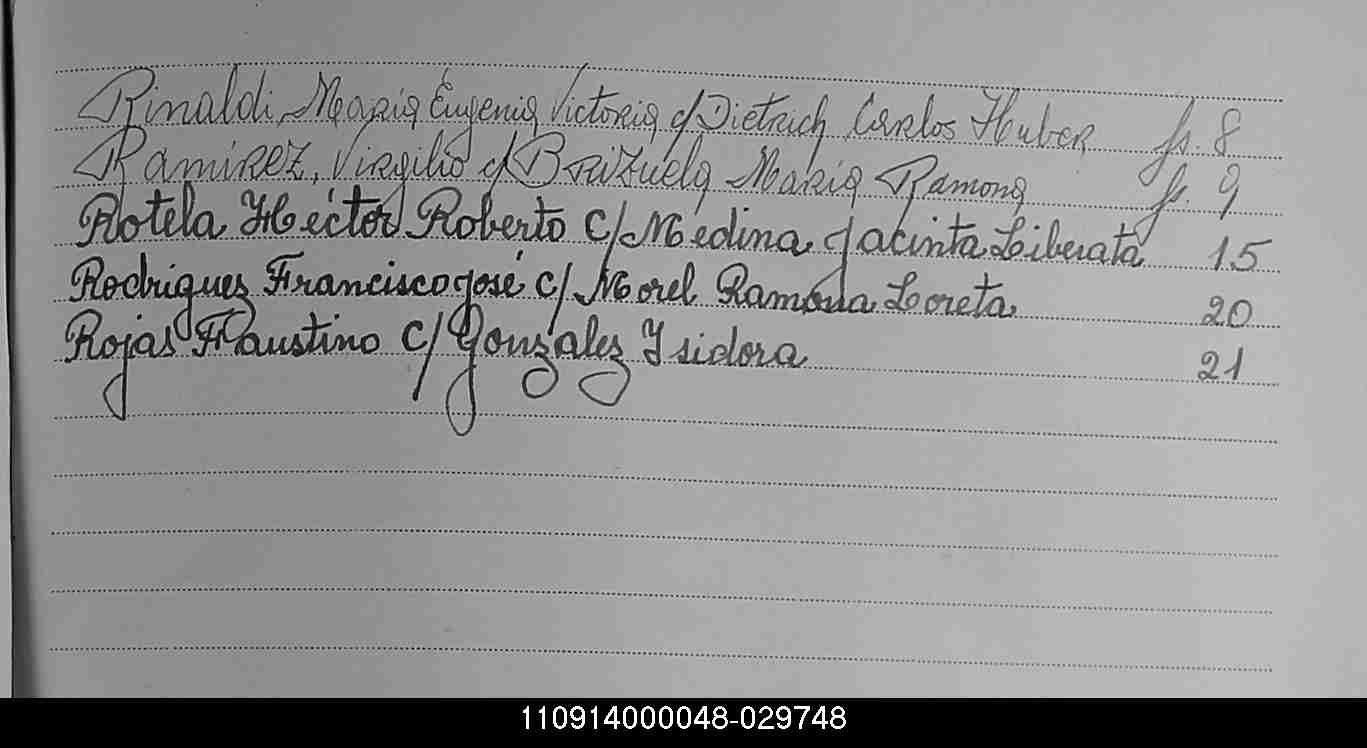 Rinaldi, Maria Eugenia Victoria c/ Dietrich Carlos Huber fs. 8
Ramirez, Virgilio c/ Brizuela Maria Ramona fs. 9
Rotela Héctor Roberto C/ Medina Jacinta Liberata 15
Rodriguez Francisco José C/ Morel Ramona Loreta 20
Rojas Faustino C/ Gonzalez Isidora 21
110914000048-029748